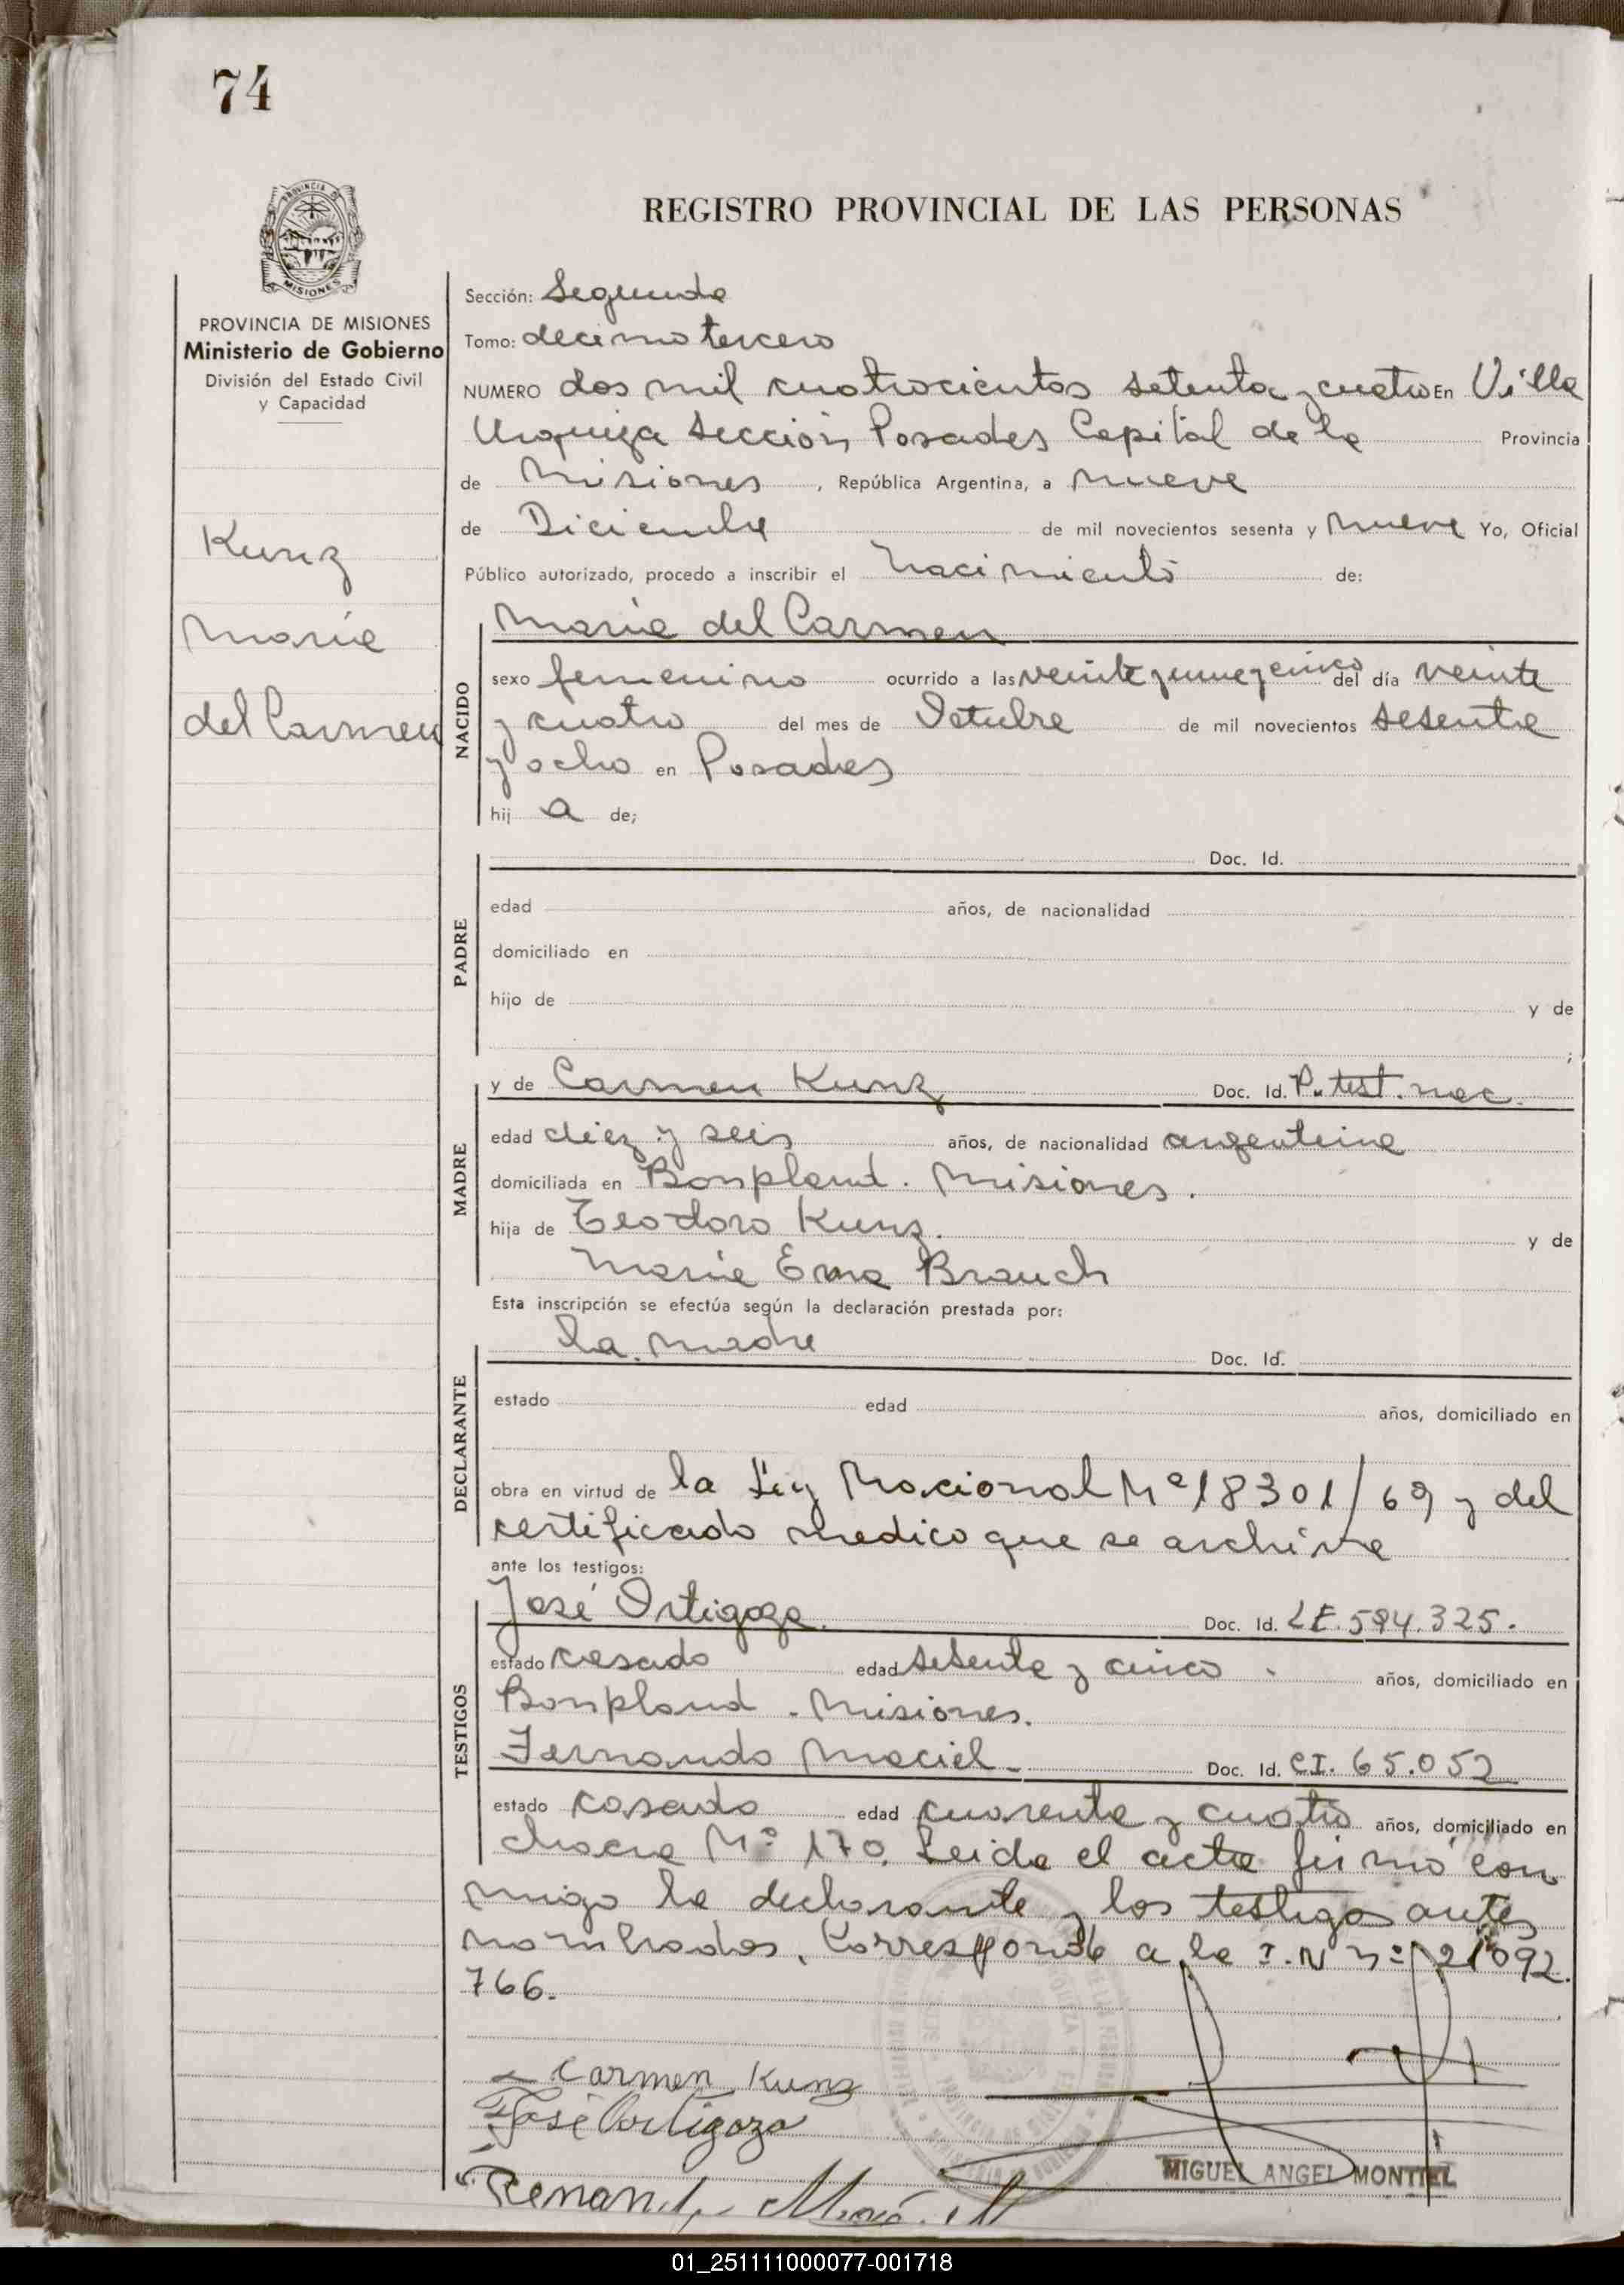 74
PROVINCIA DE
MISIONES
REGISTRO PROVINCIAL DE LAS PERSONAS
PROVINCIA DE MISIONES
Ministerio de Gobierno
División del Estado Civil
y Capacidad
Kunz
María
del Carmen
Sección: Segunda
Tomo: decimo tercero
NUMERO dos mil cuatrocientos setenta y cuatro En Villa
Urquiza Sección Posadas Capital de la Provincia
de Misiones, República Argentina, a nueve
de Diciembre de mil novecientos sesenta y nueve Yo, Oficial
Público autorizado, procedo a inscribir el nacimiento de:
NACIDO
María del Carmen
sexo femenino ocurrido a las veinte y una y cinco del día veinte
y cuatro del mes de Octubre de mil novecientos sesenta
y ocho en Posadas
hij a de;
PADRE
Doc. Id.
edad años, de nacionalidad
domiciliado en
hijo de y de
;
MADRE
y de Carmen Kunz Doc. Id. P. test. nac.
edad diez y seis años, de nacionalidad argentina
domiciliada en Bonpland. Misiones.
hija de Teodoro Kunz. y de
María Ema Brauch
Esta inscripción se efectúa según la declaración prestada por:
DECLARANTE
la madre Doc. Id.
estado edad años, domiciliado en
obra en virtud de la Ley Nacional Nº 18301/69 y del
certificado medico que se archiva
ante los testigos:
TESTIGOS
José Ortigoza. Doc. Id. LE. 594.325.
estado casado edad sesenta y cinco años, domiciliado en
Bonpland. Misiones.
Fernando Maciel Doc. Id. CI. 65.052
estado casado edad cuarenta y cuatro años, domiciliado en
chacra Nº 170. Leida el acta firmó con
migo la declarante y los testigos antes
nombrados. Corresponde a la I.N nº 21092
766.
Carmen Kunz
José Ortigoza
Fernando Maciel
MIGUEL ANGEL MONTIEL
01_251111000077-001718